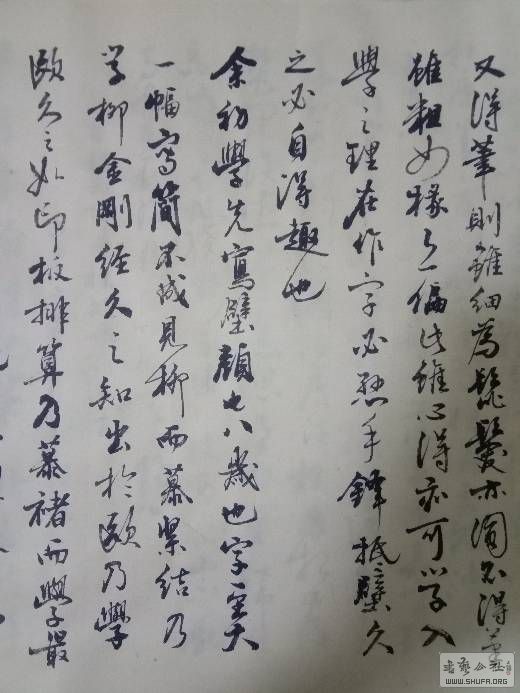 又得筆則雖細為髭髮亦圓不得筆
雖粗如椽亦偏此雖心得亦可學入
學之理在作字必懸手鋒抵壁久
之必自得趣也
余初學先寫壁顏七八歲也字至大
一幅寫簡不成見柳而慕緊結乃
学柳金剛經久之知出於歐乃學
歐久之如印板排算乃慕褚而學最
书艺公社
WWW.SHUFA.ORG